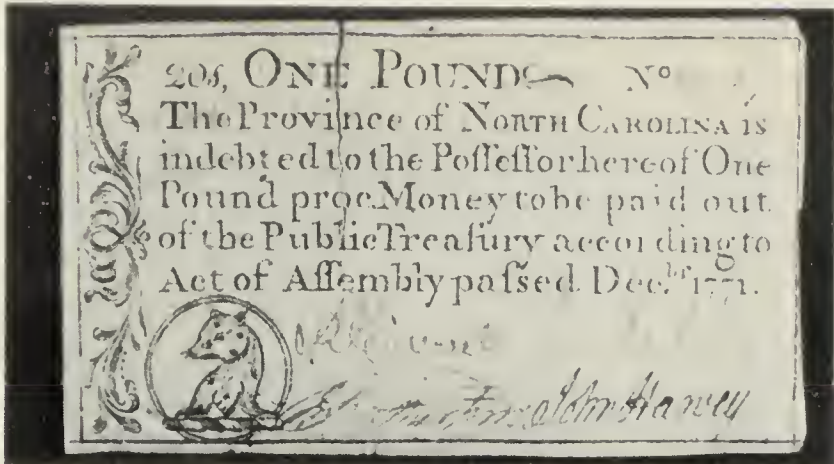 20s, ONE POUND No
The Province of NORTH CAROLINA is
indebted to the Poſſeſſor hereof One
Pound proc. Money to be paid out
of the Public Treaſury according to
Act of Aſſembly paſſed Decbr. 1771.
John Harvey